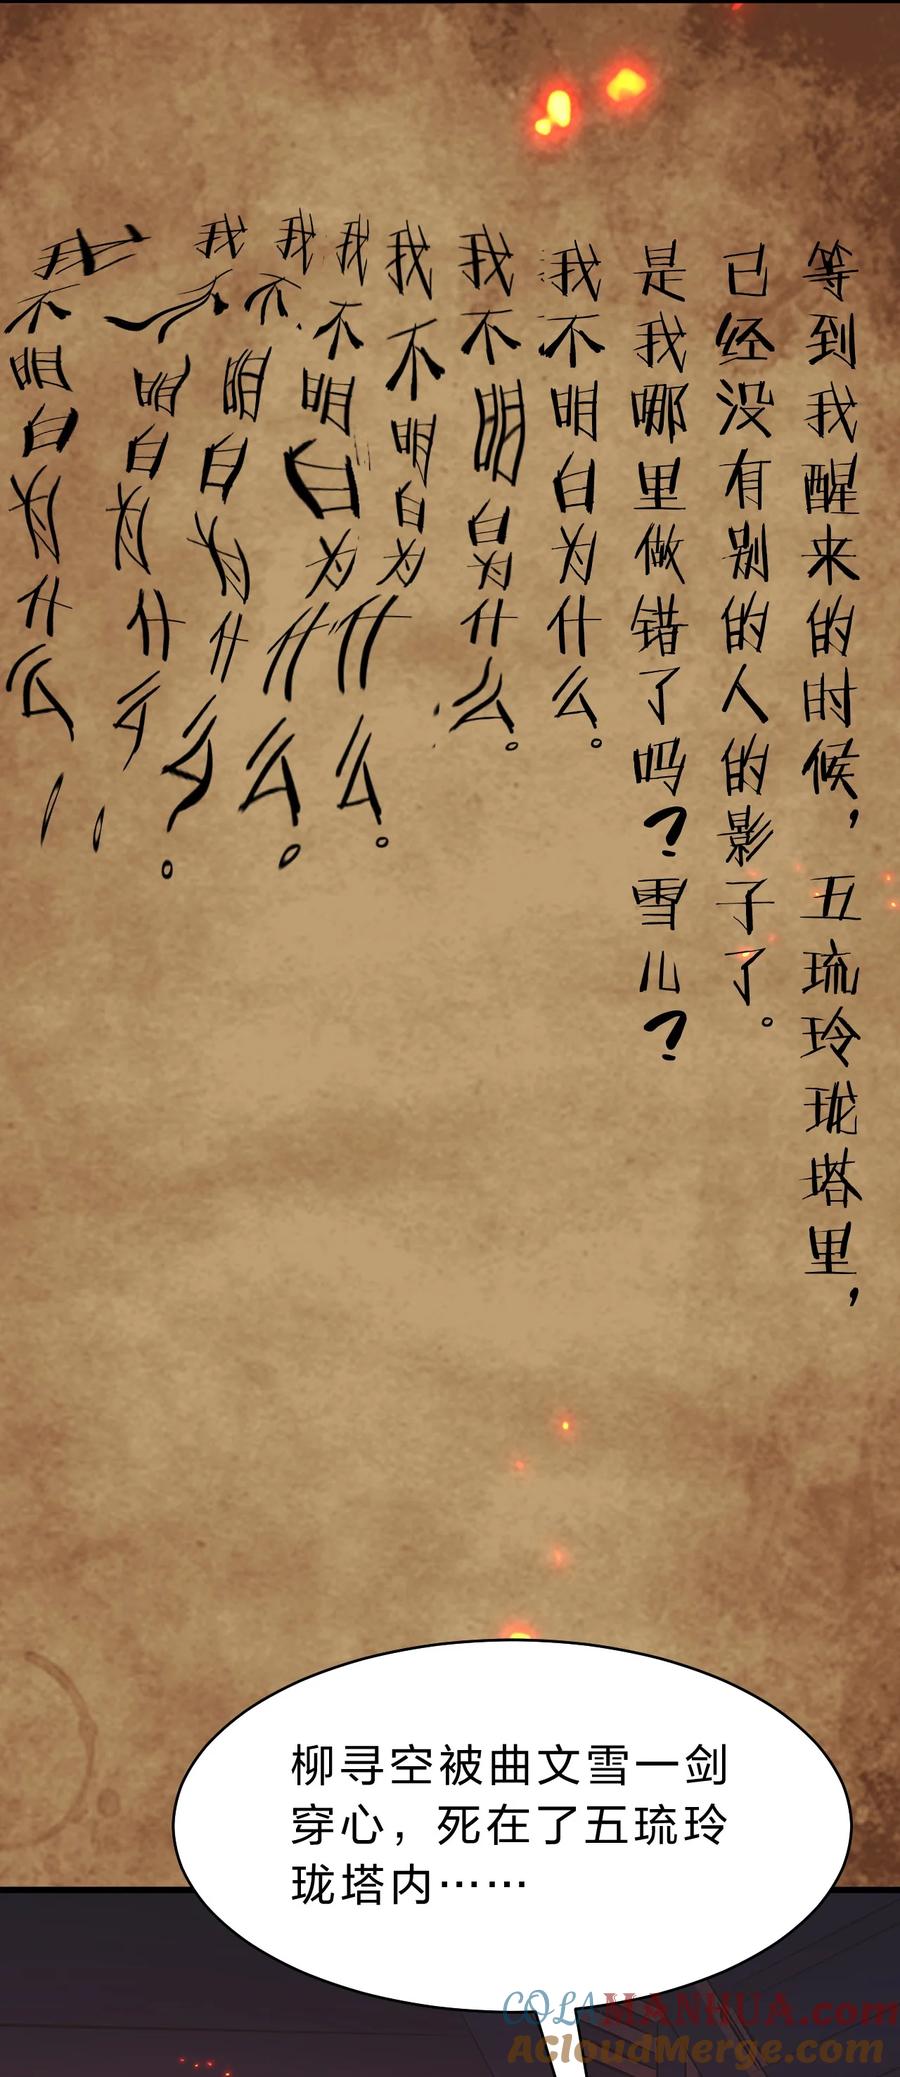 等到我醒来的时候，五琉玲珑塔里，
已经没有别的人的影子了。
是我哪里做错了吗？雪儿？
我不明白为什么。
我不明白为什么。
我不明白为什么。
我不明白为什么。
我不明白为什么。
我不明白为什么
我不明白为什么
柳寻空被曲文雪一剑
穿心，死在了五琉玲
珑塔内……
COLAMANHUA.com
ACloudMerge.com